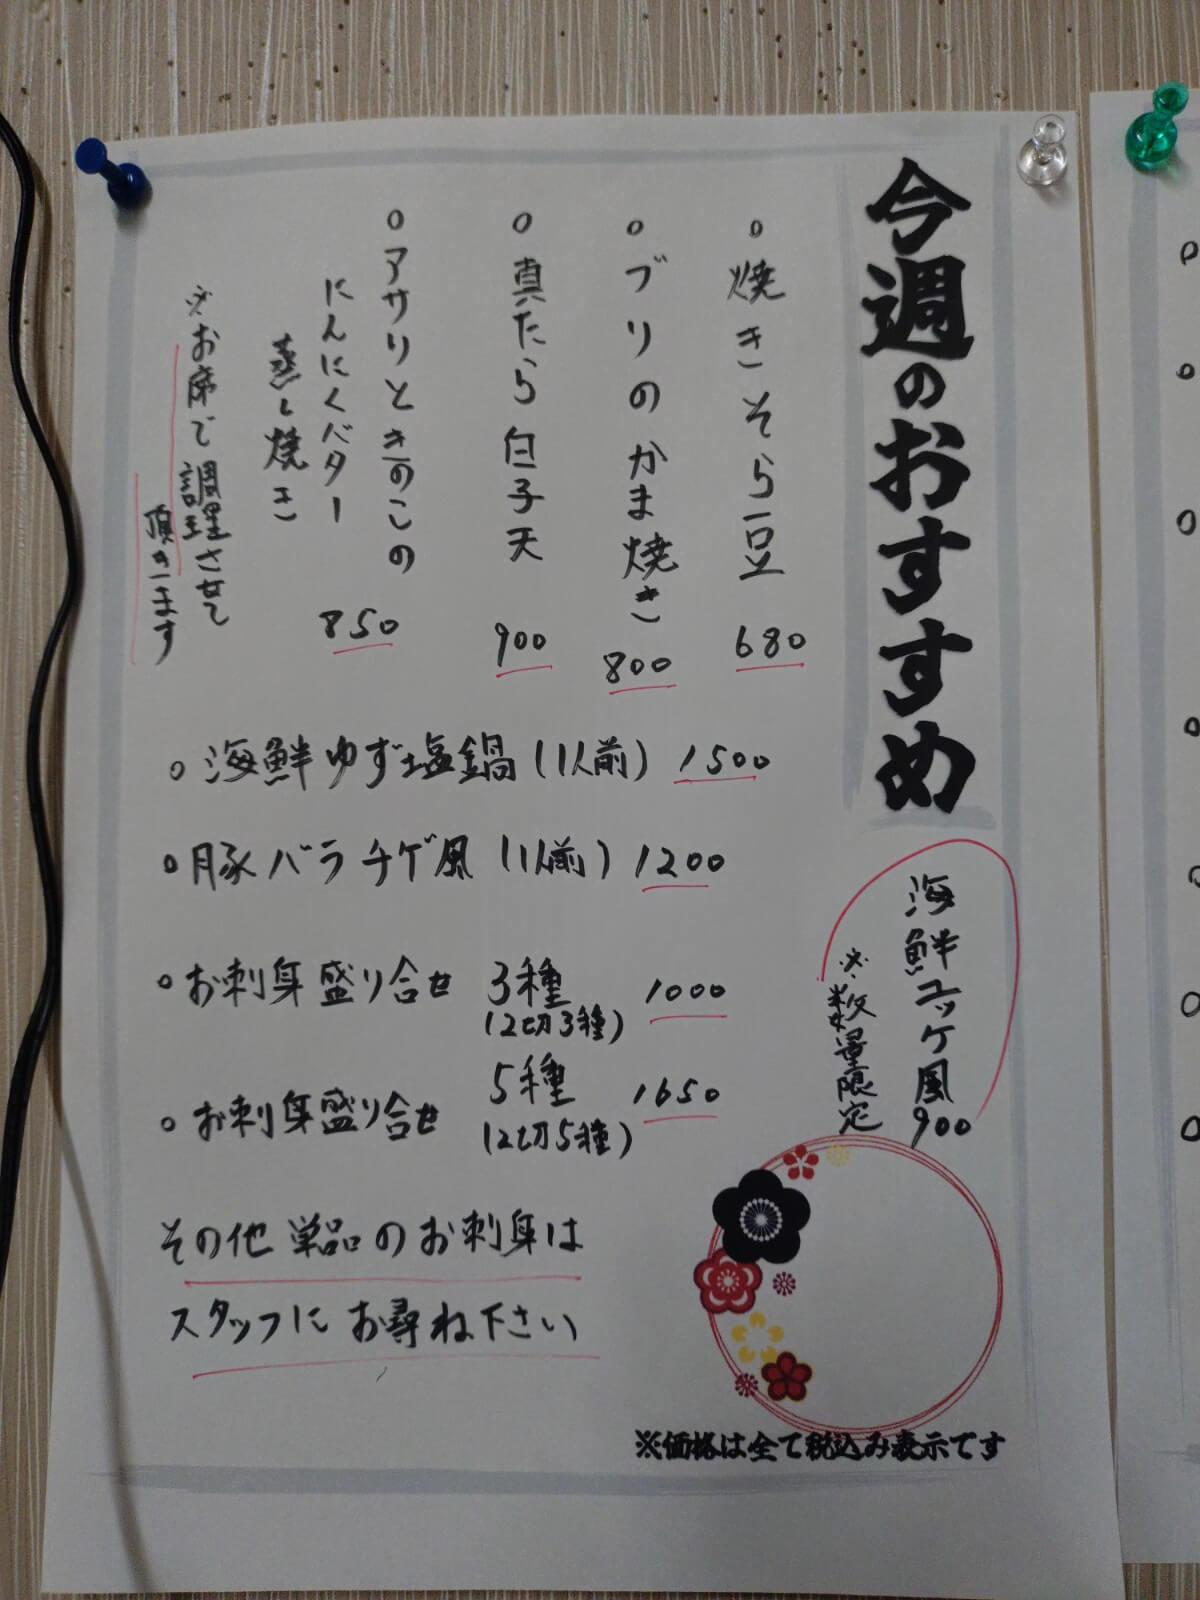 今週のおすすめ
○ 焼きそら豆 680
○ ブリのかま焼き 800
○ 真たら白子天 900
○ アサリときのこの
にんにくバター
蒸し焼き 850
※お席で調理させて
頂きます
○ 海鮮ゆず塩鍋(1人前) 1500
○ 豚バラチゲ風(1人前) 1200
○ お刺身盛り合せ 3種 1000
(2切3種)
○ お刺身盛り合せ 5種 1650
(2切5種)
その他単品のお刺身は
スタッフにお尋ね下さい
海鮮ユッケ風 900
※数量限定
※価格は全て税込み表示です